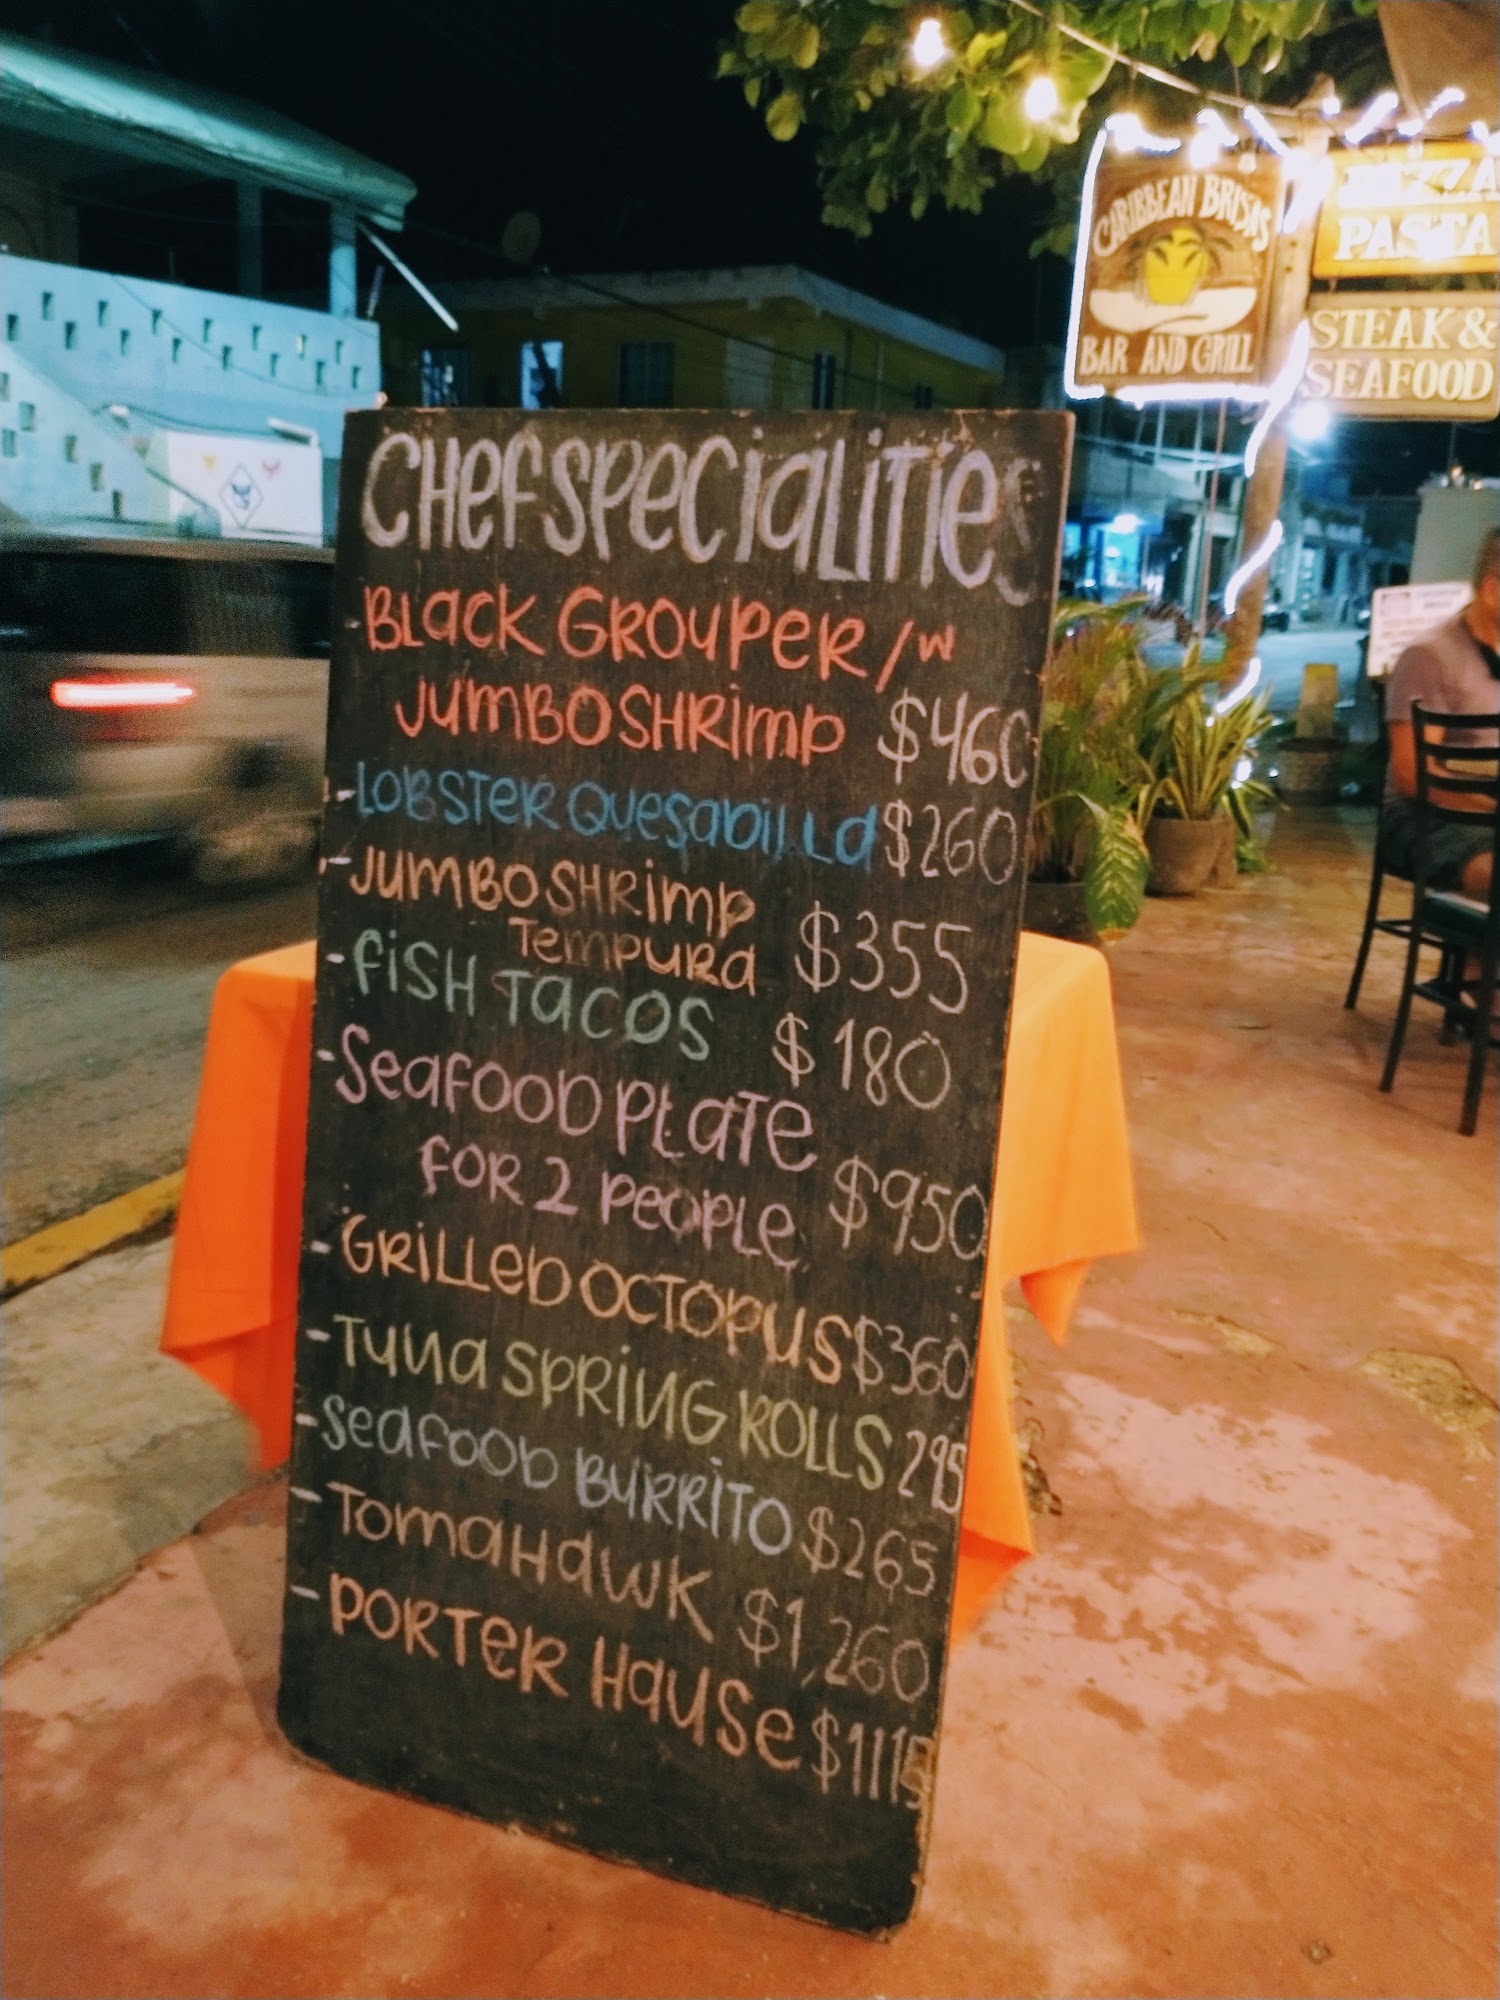 CARIBBEAN BRISAS
BAR AND GRILL
PIZZA
PASTA
STEAK &
SEAFOOD
CHEF SPECIALITIES
- BLACK GROUPER /W
JUMBO SHRIMP $460
- LOBSTER QUESADILLA $260
- JUMBO SHRIMP
TEMPURA $355
- FISH TACOS $180
- SEAFOOD PLATE
FOR 2 PEOPLE $950
- GRILLED OCTOPUS $360
- TUNA SPRING ROLLS 295
- SEAFOOD BURRITO $265
- TOMAHAWK $1,260
- PORTER HAUSE $1115